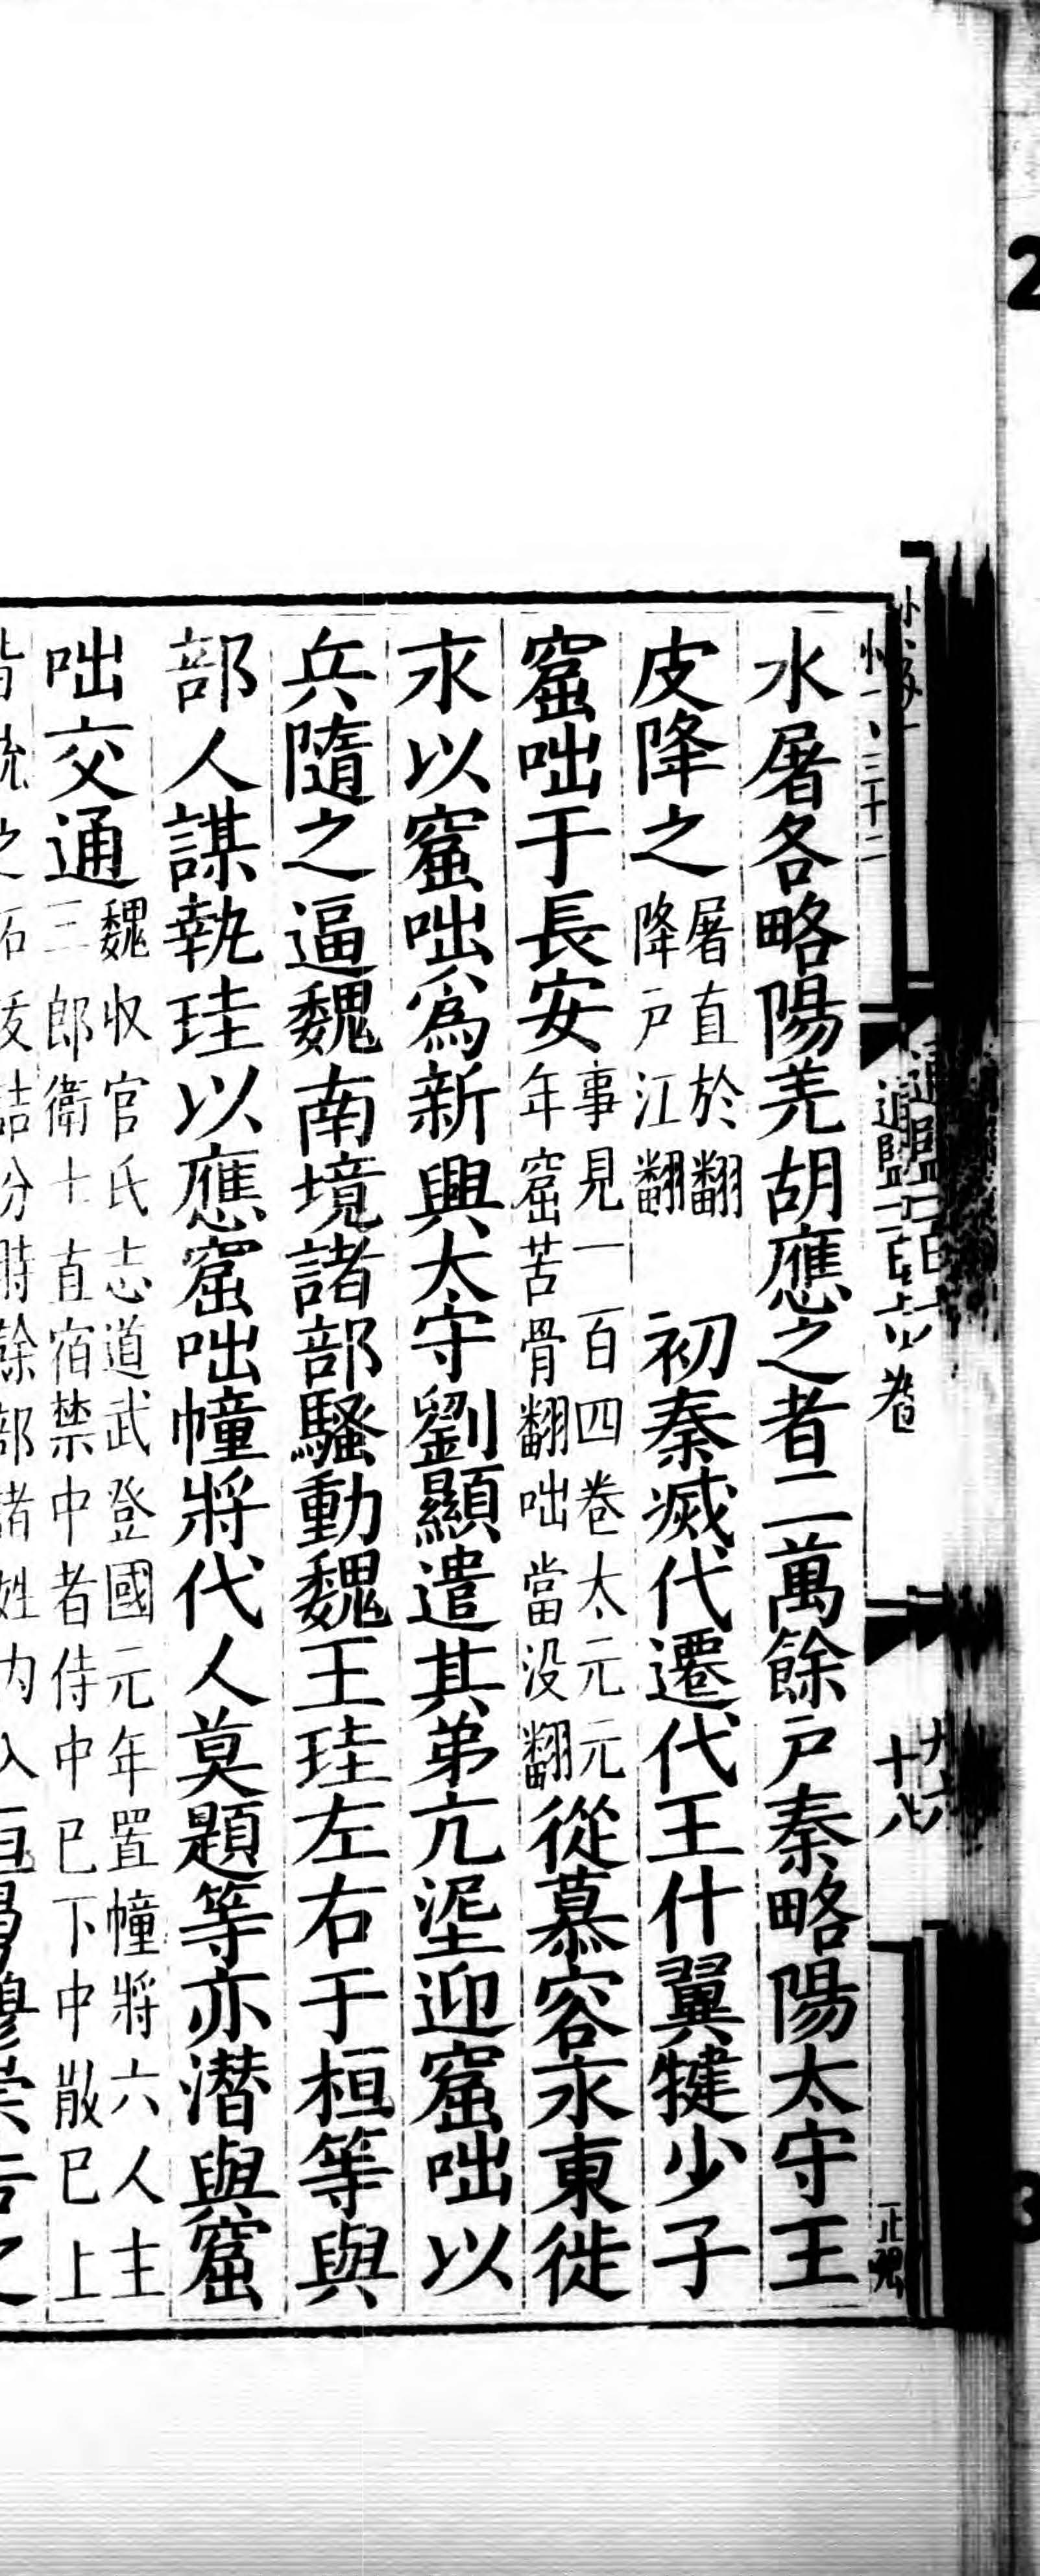 水屠各略陽羌胡應之者二萬餘戶秦略陽太守王
皮降之屠直於翻降戶江翻 初秦滅代遷代王什翼犍少子
窟咄于長安事見一百四卷太元元年窟苦骨翻咄當没翻從慕容永東徙
永以窟咄爲新興太守劉顯遣其弟亢埿迎窟咄以
兵隨之逼魏南境諸部騷動魏王珪左右于桓等與
部人謀執珪以應窟咄幢將代人莫題等亦潜與窟
咄交通魏收官氏志道武登國元年置幢將六人主三郎衛士直宿禁中者侍中巳下中散巳上